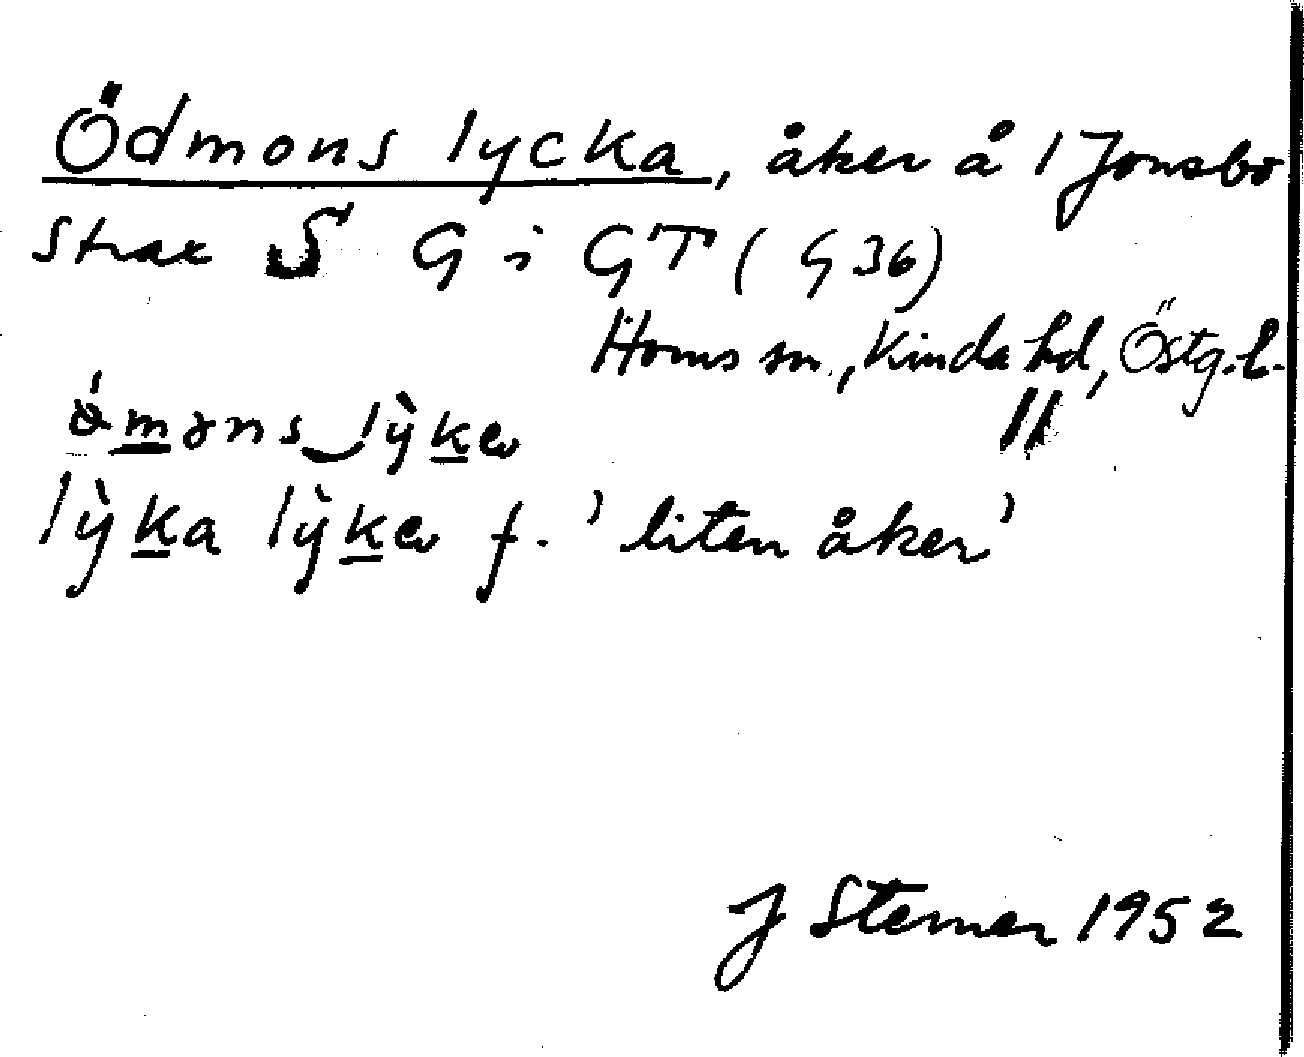 Ödmons lycka, åker å 1 Jonsbo
strax S G i GT (G36)
Horns sn, Kinda hd, Östg.l.
ǿmɔns lỳka
lỳka lỳka f. 'liten åker'
J Sterner 1952